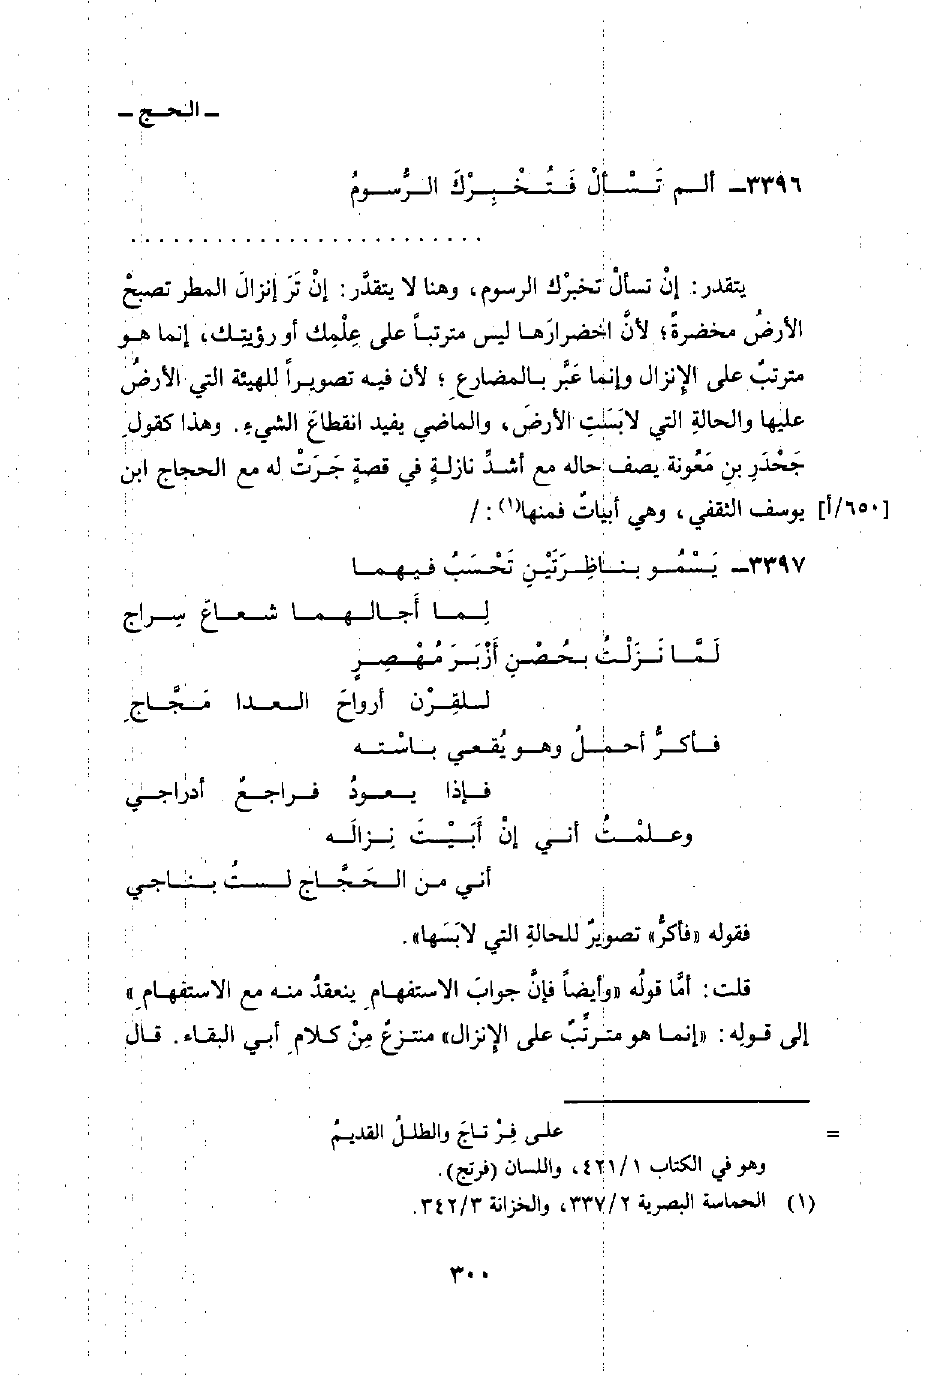 ـ الحـج ـ
٣٣٩٦ـ ألـم تَـسْـألْ فَـتُـخْـبِـرْكَ الـرُّسـومُ
. . . . . . . . . . . . . . . . . . . . . . . . .
يتقدر: إنْ تسألْ تخبرْك الرسوم، وهنا لا يتقدَّر: إنْ تَرَ إنزالَ المطر تصبحْ
الأرضُ مخضرةً؛ لأنَّ اخضرارَهـا ليس مترتباً على عِلْمِك أو رؤيتِـك، إنما هـو
مترتبٌ على الإنزال وإنما عَبَّر بـالمضارعِ؛ لأن فيـه تصويـراً للهيئة التي الأرضُ
عليها والحالةِ التي لابَسَتِ الأرضَ، والماضي يفيد انقطاعَ الشيء. وهذا كقولِ
جَحْدَرِ بنِ مَعُونة يصف حاله مع أشدِّ نازلـةٍ في قصةٍ جَرَتْ له مع الحجاج ابن
[٦٥٠/أ] يوسف الثقفي، وهي أبياتٌ فمنها(١): /
٣٣٩٧ـ يَـسْمُـو بـنـاظِـرَتَيْنِ تَحْسَبُ فـيـهـمـا
لِـمـا أَجـالَـهـمـا شـعـاعَ سِـراج
لَـمَّـا نَـزَلْـتُ بـحُـصْـنِ أَزْبَـرَ مُـهْـصِـرٍ
لـلقِـرْن أرواحَ الـعـدا مَـجَّـاجِ
فـأكـرُّ أحمـلُ وهـو يُقعي بـاسْتـه
فـإذا يـعـودُ فـراجـعٌ أدراجـي
وعـلـمْـتُ أنـي إنْ أَبَـيْـتَ نِـزالَـه
أنـي مـن الـحَـجَّـاج لـسـتُ بـنـاجي
فقوله «فأكرُّ» تصويرٌ للحالةِ التي لابَسَها».
قلت: أمَّا قولُه «وأيضاً فإنَّ جوابَ الاستفهامِ ينعقدُ منه مع الاستفهامِ»
إلى قـولِه: «إنمـا هو متـرتِّبٌ على الإنزال» منتـزعٌ مِنْ كـلامِ أبـي البقـاء. قـال
= علـى فِـرْ تـاجَ والطلـلُ القديـمُ
وهو في الكتاب ٤٢١/١، واللسان (فرتج).
(١) الحماسة البصرية ٣٣٧/٢، والخزانة ٣٤٢/٣.
٣٠٠